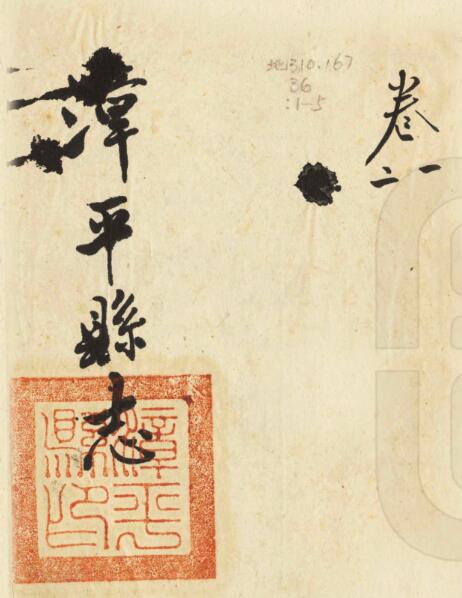 卷
一二
地310.167
36
:1-5
漳平縣志
漳平
縣印